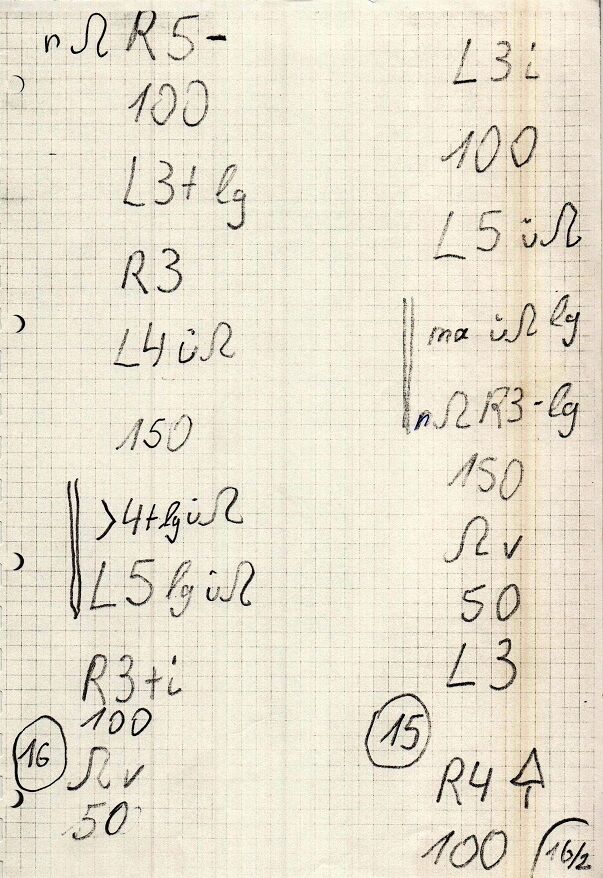 n Ω R5-
100
L3+ lg
R3
L4 ü Ω
150
>4+lg ü Ω
L5 lg ü Ω
R3+i
100
16
Ω v
50
L3i
100
L5 ü Ω
ma ü Ω lg
n Ω R3-lg
150
Ω v
50
L3
15
R4 ↑
100
16/2